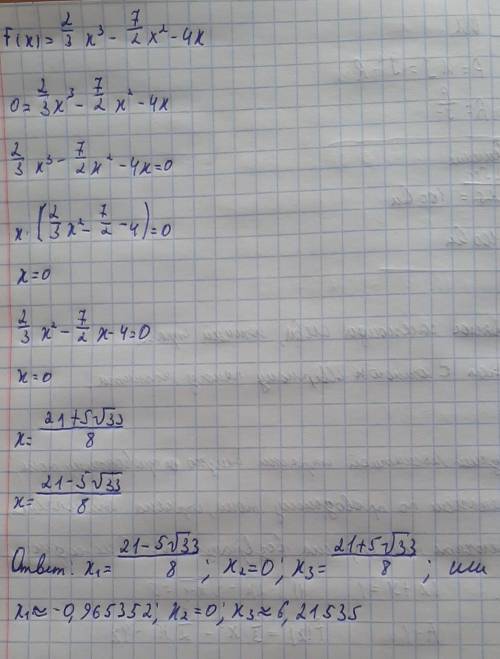 F(x) = 2/3 x³ - 7/2 x² - 4x
0 = 2/3 x³ - 7/2 x² - 4x
2/3 x³ - 7/2 x² - 4x = 0
x · (2/3 x² - 7/2 - 4) = 0
x = 0
2/3 x² - 7/2 x - 4 = 0
x = 0
x = (21 + 5√33)/8
x = (21 - 5√33)/8
Ответ: x₁ = (21 - 5√33)/8 ; x₂ = 0 ; x₃ = (21 + 5√33)/8 ; или
x₁ ≈ -0,965352 ; x₂ = 0 ; x₃ ≈ 6,21535